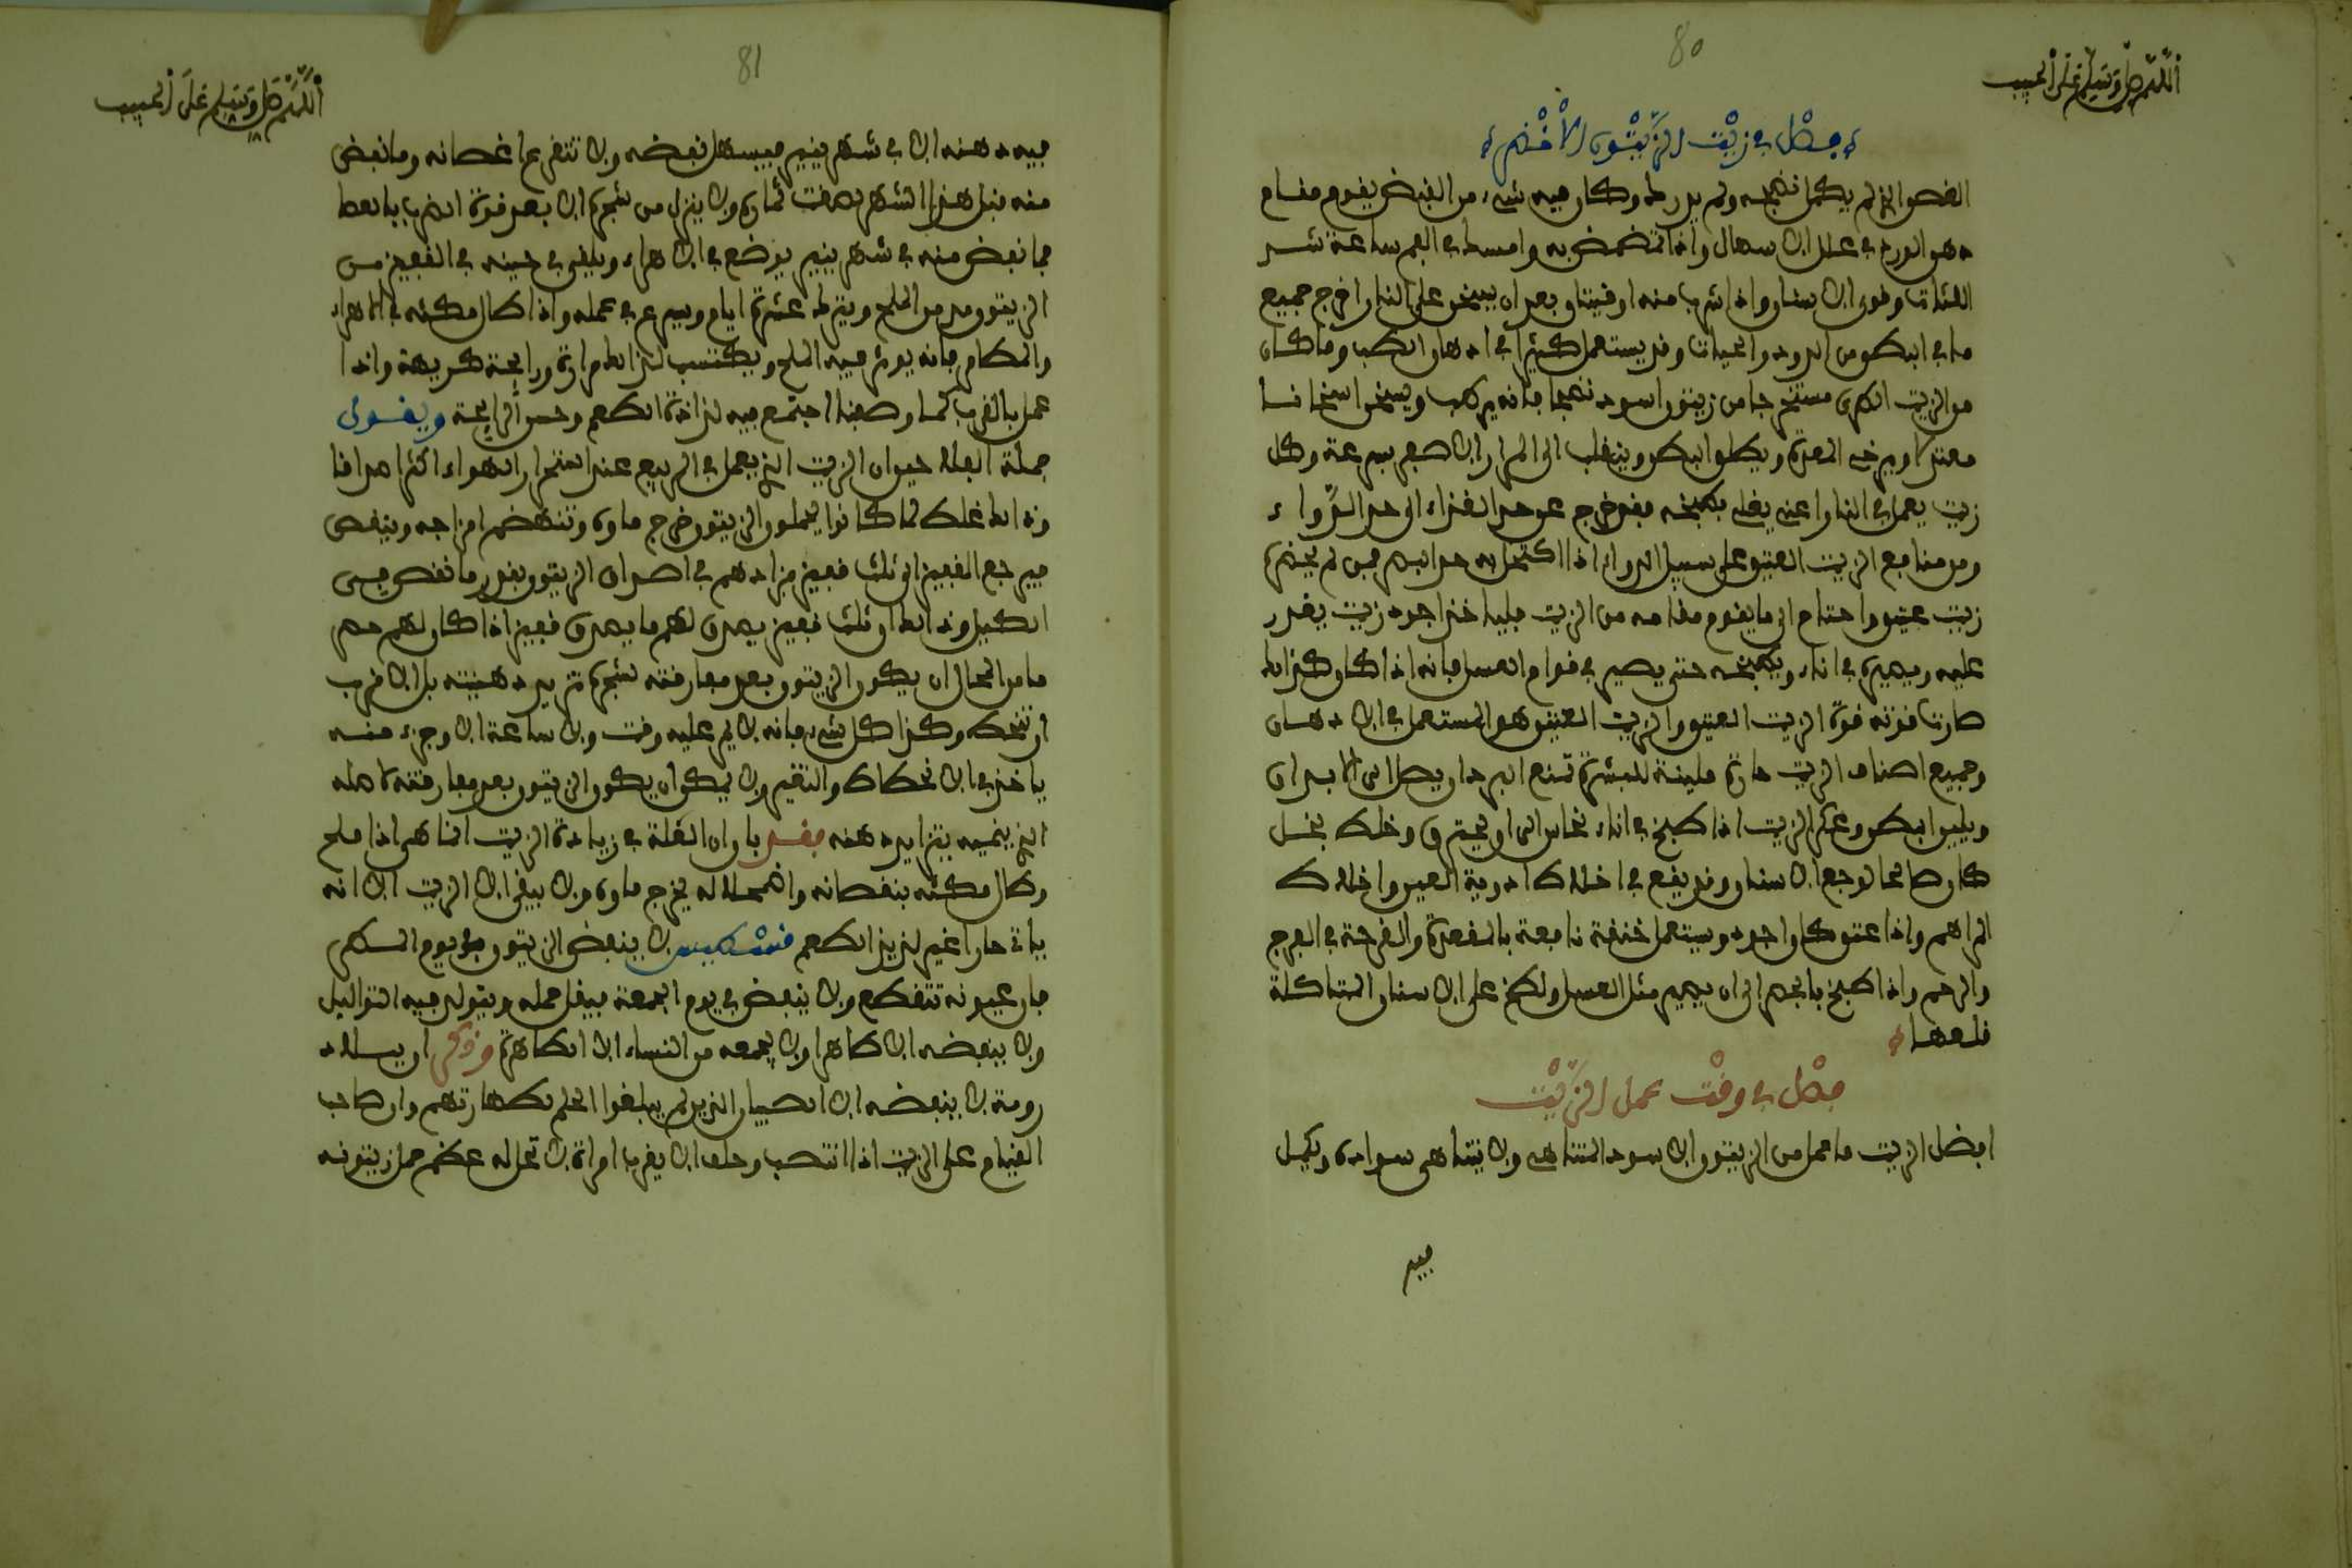 80
اللهم صل وسلم على الحبيب
فصل في زيت الزيتون الأخضر
الغض الذي لم يكمل نضجه ولم يدرك وكان فيه شيء من القبض يقوم مقام
دهن الورد في علل الاسهال واذا تمضمض به وامسك في الفم ساعة شد
اللثات وقوى الاسنان واذا شرب منه اوقيتان بعد ان يسخن على النار اخرج جميع
ما في البطن من الدود والحيات وقد يستعمل كثيرا في ادهان الطب وما كان
من الزيت الطري مستخرجا من زيتون اسود نضيجا فانه يرطب ويسخن اسخانا
معتدلا ويرخي المعدة ويطلق البطن وينقلب الى المرار الاصفر بسرعة وكل
زيت يعمل في النار اعني يغلى بطبخه فقد خرج عن حد الغذاء الى حد الدواء
ومن منافع الزيت العتيق على سبيل الدواء اذا اكتحل به احد البصر فمن لم يحضره
زيت عتيق واحتاج الى ما يقوم مقامه من الزيت فلياخذ اجود زيت يقدر
عليه ويصيره في اناء ويطبخه حتى يصير في قوام العسل فانه اذا كان كذلك
صارت قوته قوة الزيت العتيق والزيت العتيق هو المستعمل في الادهان
وجميع اصناف الزيت حارة ملينة للبشرة تمنع البرد ان يصل الى الابدان
ويلين البطن وعكر الزيت اذا طبخ في اناء نحاس الى ان يحترق وخلط بخل
كان صالحا لوجع الاسنان وقد يقع في اخلاط ادوية العين واخلاط
المراهم واذا عتق كان اجود ويستعمل حقنة نافعة بالمقعدة والقرحة في الفرج
والرحم واذا طبخ بالحصرم الى ان يصير مثل العسل ولطخ على الاسنان المتاكلة
قلعها
فصل في وقت عمل الزيت
افضل الزيت ما عمل من الزيتون الاسود المتناهي ولا يتناهى سواده ويكمل
فيه
81
اللهم صل وسلم على الحبيب
فيه دهنه الا في شهر ينير فيسهل نفضه ولا تتفرع اغصانه وما نفض
منه قبل هذا الشهر نقصت ثماره ولا ينزل من شجره الا بعد قوة الضرب بالعصا
فما نفض منه في شهر ينير يوضع في الاهراء ويلقى في حينه في القفيز من
الزيتون مد من الملح ويترك عشرة ايام ويسرع في عمله واذا طال مكثه في الاهراء
والمطامر فانه يوثر فيه الملح ويكتسب لذلك مرارة ورايحة كريهة واذا
عمل بالقرب كما وصفنا اجتمع فيه لذاذة الطعم وحسن الرايحة ويقول
جملة الفلاحين ان الزيت الذي يعمل في الربيع عند استحرار الهواء اكثر اهراقا
وذلك غلط لما كانوا يحملون الزيتون خرج ماؤه وتنهضم امزاجه وينقص
فيرجع القفيز الى ثلث قفيز فزادهم في اصران الزيتون بقدر ما نقص من
الكيل وذلك ان ثلث قفيز يهرق لهم ما يهرق قفيز اذا كان لهم حصر
ما من المحال ان يكون الزيتون بعد مفارقته شجره تزيد دهنيته بل الاقرب
ان تنحط وكذا كل شيء فانه لا يمر عليه وقت ولا ساعة الا وجزء منه
ياخذ في الانحطاط والتغير ولا يمكن ان يكون الزيتون بعد مفارقته لاصله
الذي ينميه يتزايد دهنه فقد بان ان الغلة في زيادة الزيت انما هي اذا ملح
وطال مكثه بنقصانه واضمحلاله يخرج ماؤه ولا يبقى الا الزيت الا انه
ياتي حارا غير لذيذ الطعم قسطيس لا ينفض الزيتون يوم السكر
فان عيونه تتقطع ولا ينفض في يوم الجمعة فيقل حمله ويتولد فيه التواليل
ولا ينفضه الا طاهر ولا يجمعه من النساء الا الطاهرة وذكر ان ببلاد
رومة لا ينفضه الا الصبيان الذين لم يبلغوا الحلم لطهارتهم وان صاحب
القيام على الزيت اذا انتصب وحلف الا يقرب امراة لا تحل له عظم حمل زيتونه